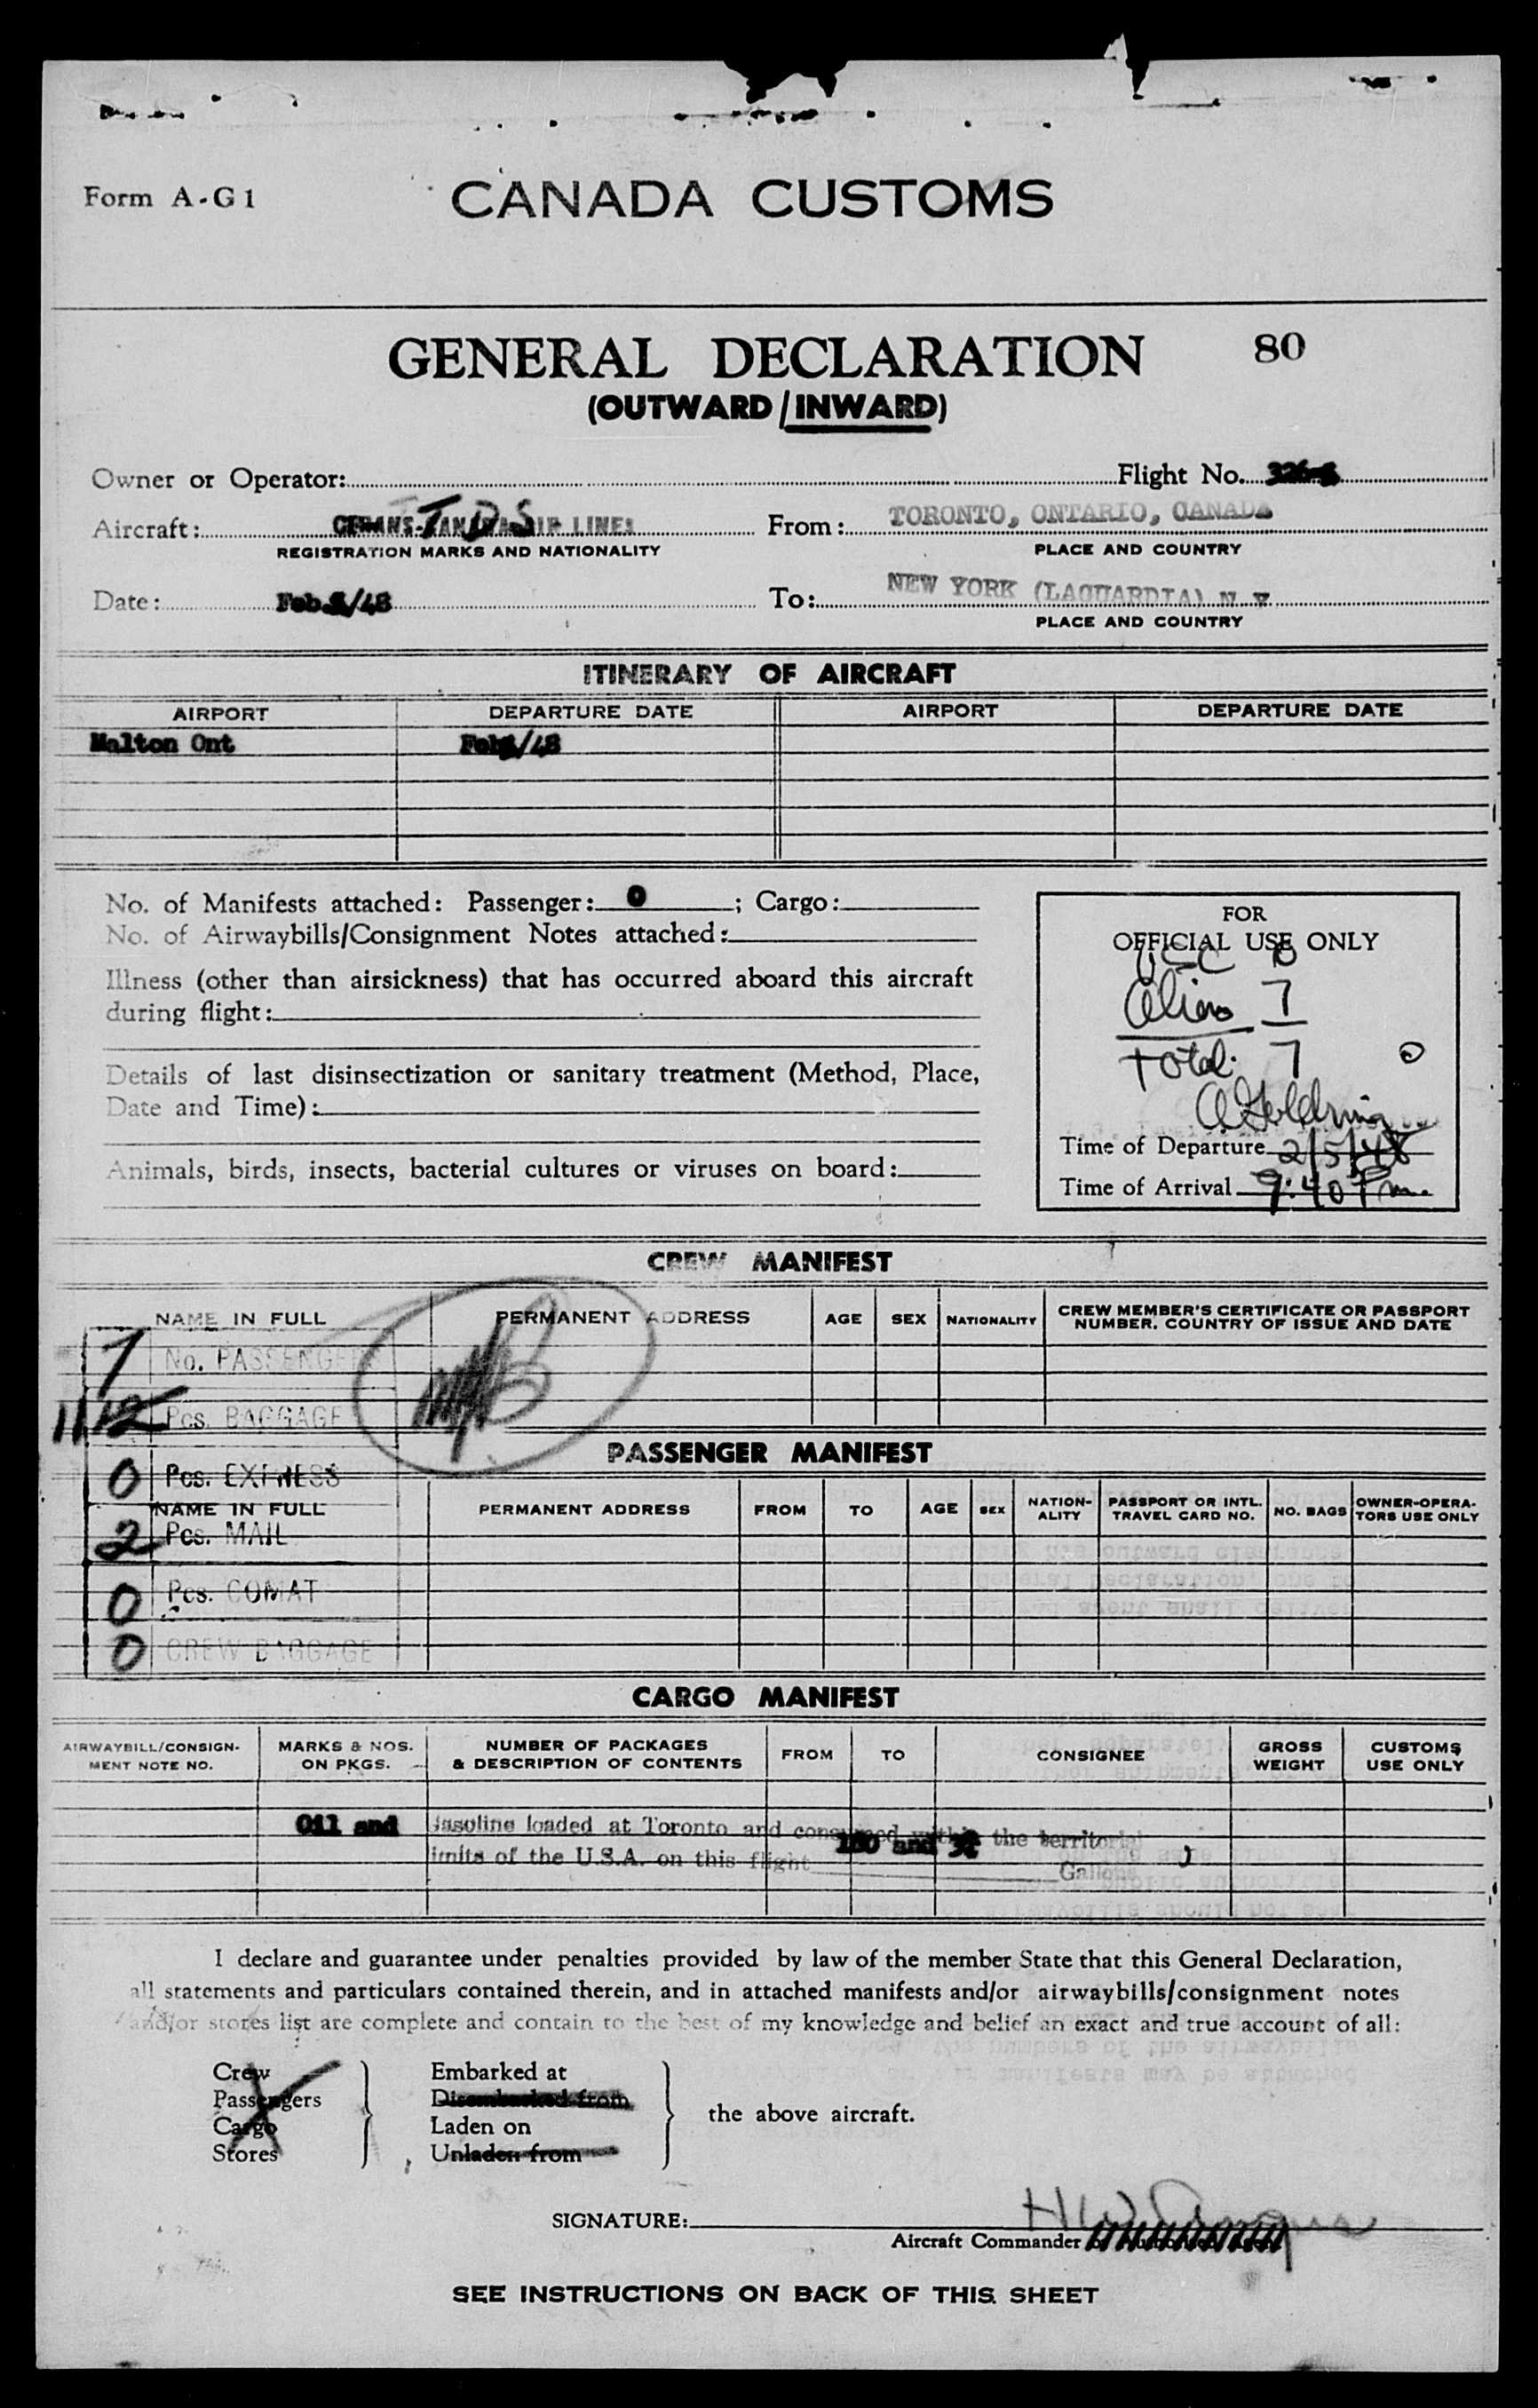 Form A-G1
CANADA CUSTOMS
GENERAL DECLARATION 80
(OUTWARD/INWARD)
Owner or Operator: Flight No.
Aircraft: From: TORONTO, ONTARIO, CANADA
REGISTRATION MARKS AND NATIONALITY PLACE AND COUNTRY
Date: Feb /48 To: NEW YORK (LAGUARDIA) N Y
PLACE AND COUNTRY
ITINERARY OF AIRCRAFT
AIRPORT DEPARTURE DATE AIRPORT DEPARTURE DATE
Malton Ont Feb /48
No. of Manifests attached: Passenger: 0 ; Cargo:
No. of Airwaybills/Consignment Notes attached:
Illness (other than airsickness) that has occurred aboard this aircraft
during flight:
Details of last disinsectization or sanitary treatment (Method, Place,
Date and Time):
Animals, birds, insects, bacterial cultures or viruses on board:
FOR
OFFICIAL USE ONLY
USC 0
Aliens 7
Total: 7 0
Time of Departure 2/5/48
Time of Arrival 9:40 Pm.
CREW MANIFEST
NAME IN FULL PERMANENT ADDRESS AGE SEX NATIONALITY CREW MEMBER'S CERTIFICATE OR PASSPORT
NUMBER, COUNTRY OF ISSUE AND DATE
7 No. PASSENGERS
11/12 Pcs. BAGGAGE
PASSENGER MANIFEST
0 Pcs. EXPRESS
NAME IN FULL PERMANENT ADDRESS FROM TO AGE SEX NATION-
ALITY PASSPORT OR INTL.
TRAVEL CARD NO. NO. BAGS OWNER-OPERA-
TORS USE ONLY
2 Pcs. MAIL
0 Pcs. COMAT
0 CREW BAGGAGE
CARGO MANIFEST
AIRWAYBILL/CONSIGN-
MENT NOTE NO. MARKS & NOS.
ON PKGS. NUMBER OF PACKAGES
& DESCRIPTION OF CONTENTS FROM TO CONSIGNEE GROSS
WEIGHT CUSTOMS
USE ONLY
Oil and Gasoline loaded at Toronto and consumed within the territorial
limits of the U.S.A. on this flight Gallons
I declare and guarantee under penalties provided by law of the member State that this General Declaration,
all statements and particulars contained therein, and in attached manifests and/or airwaybills/consignment notes
and/or stores list are complete and contain to the best of my knowledge and belief an exact and true account of all:
Crew Embarked at
Passengers Disembarked from
Cargo Laden on the above aircraft.
Stores Unladen from
SIGNATURE:
Aircraft Commander
SEE INSTRUCTIONS ON BACK OF THIS SHEET